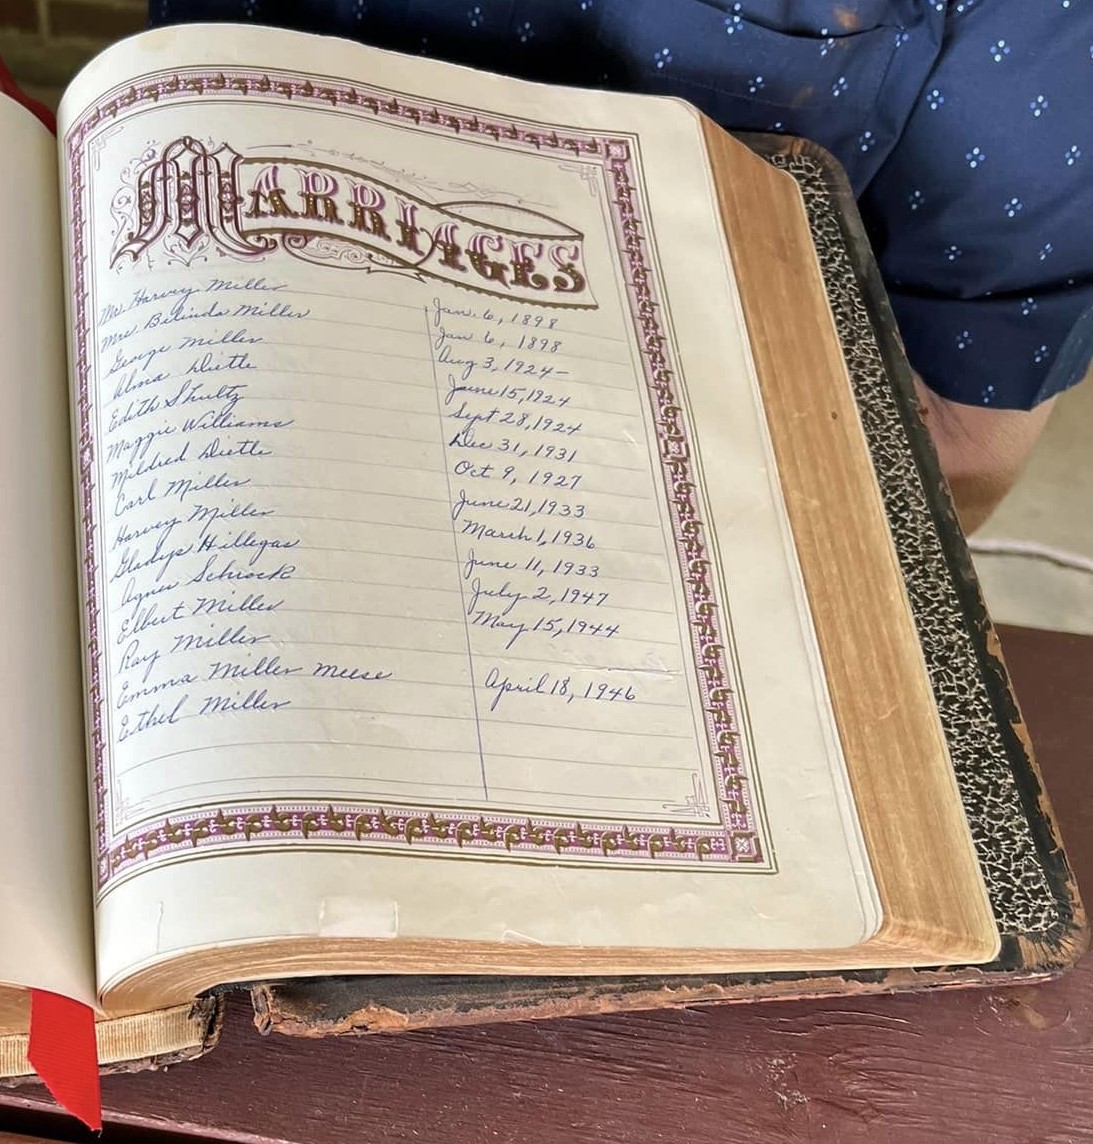 MARRIAGES
Mr. Harvey Miller Jan. 6, 1898
Mrs. Belinda Miller Jan 6, 1898
George Miller Aug 3, 1924-
Alma Dietle June 15, 1924
Edith Shultz Sept 28, 1924
Maggie Williams Dec 31, 1931
Mildred Dietle Oct 9, 1927
Carl Miller June 21, 1933
Harvey Miller March 1, 1936
Gladys Hillegas June 11, 1933
Agnes Schrock July 2, 1947
Elbert Miller May 15, 1944
Ray Miller
Emma Miller Meese April 18, 1946
Ethel Miller